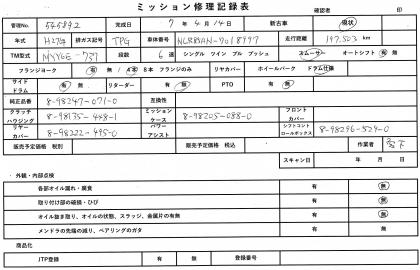 ミッション修理記録表
確認者 印
管理No. 545892 完成日 7年4月14日 新古車 現状
年式 H27年 排ガス記号 TPG 車体番号 NLR85AN-7018797 走行距離 197,503 km
TM型式 MYY6E-737 段数 6速 シングル ツイン プル プッシュ スムーサ オートシフト 有 無
フランジヨーク 有 無 / 4本 8本 フランジのみ リヤカバー ホイールパーク ドラム仕様
サイドドラム 有 無 リターダー 有 無 PTO 有 無
純正品番 8-98247-071-0 互換性
クラッチハウジング 8-98135-448-1 ミッションケース 8-98205-088-0 フロントカバー
リヤーカバー 8-98222-495-0 パワーアシスト シフトコントロールボックス 8-98296-529-0
販売予定価格 税別 販売予定価格 税込 作業者 宮下
スキャン日 年 月 日
・外観・内部点検
各部オイル漏れ・腐食 有 無
取り付け部の破損・ひび 有 無
オイル抜き取り、オイルの状態、スラッジ、金属片の有無 有 無
メンドラの先端の減り、ベアリングのガタ 有 無
商品化
JTP登録 有 無 登録番号